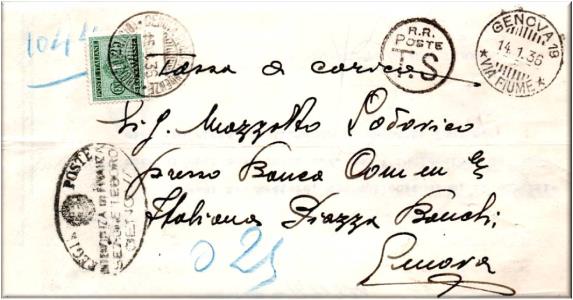 1044
R.R.
POSTE
T.S
GENOVA 19
14.1.36
* VIA FIUME *
Tassa a carico
Sig. Mazzetto Lodovico
presso Banca Comm
Italiana Piazza Banchi
Genova
REGIE POSTE
INTENDENZA DI FINANZA
SEZIONE TESORO
GENOVA
0 25